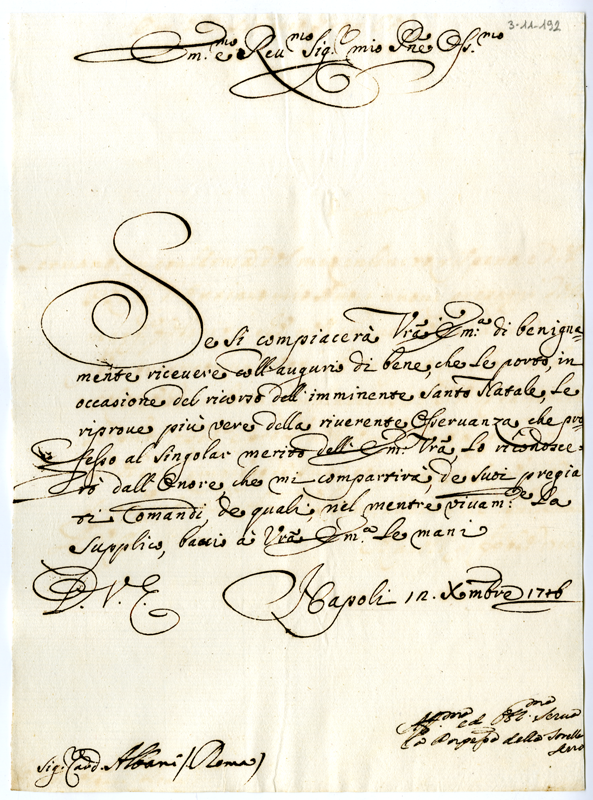 3-11-192
Em.mo e Reu.mo Sig.r mio Pne Oss.mo
Se si compiacerà Vrã Em.a di benigna=
mente riceuere coll'augurio di bene, che Le porto, in
occasione del ricorso dell'imminente Santo Natale, Le
riproue più vere della riuerente Osseruanza, che pro
fesso al singolar merito dell'Em.a Vrã, Lo riconosce=
rò dall'Onore, che mi compartirà, de suoi pregia
ti Comandi, de quali, nel mentre viuam.te La
supplico, baccio à Vrã Em.a Le mani
D. V. E.
Napoli 12. Xmbre 1746
Aff.mo ed Obl.mo Seruo
della
Sig.r Card. Albani (Roma)